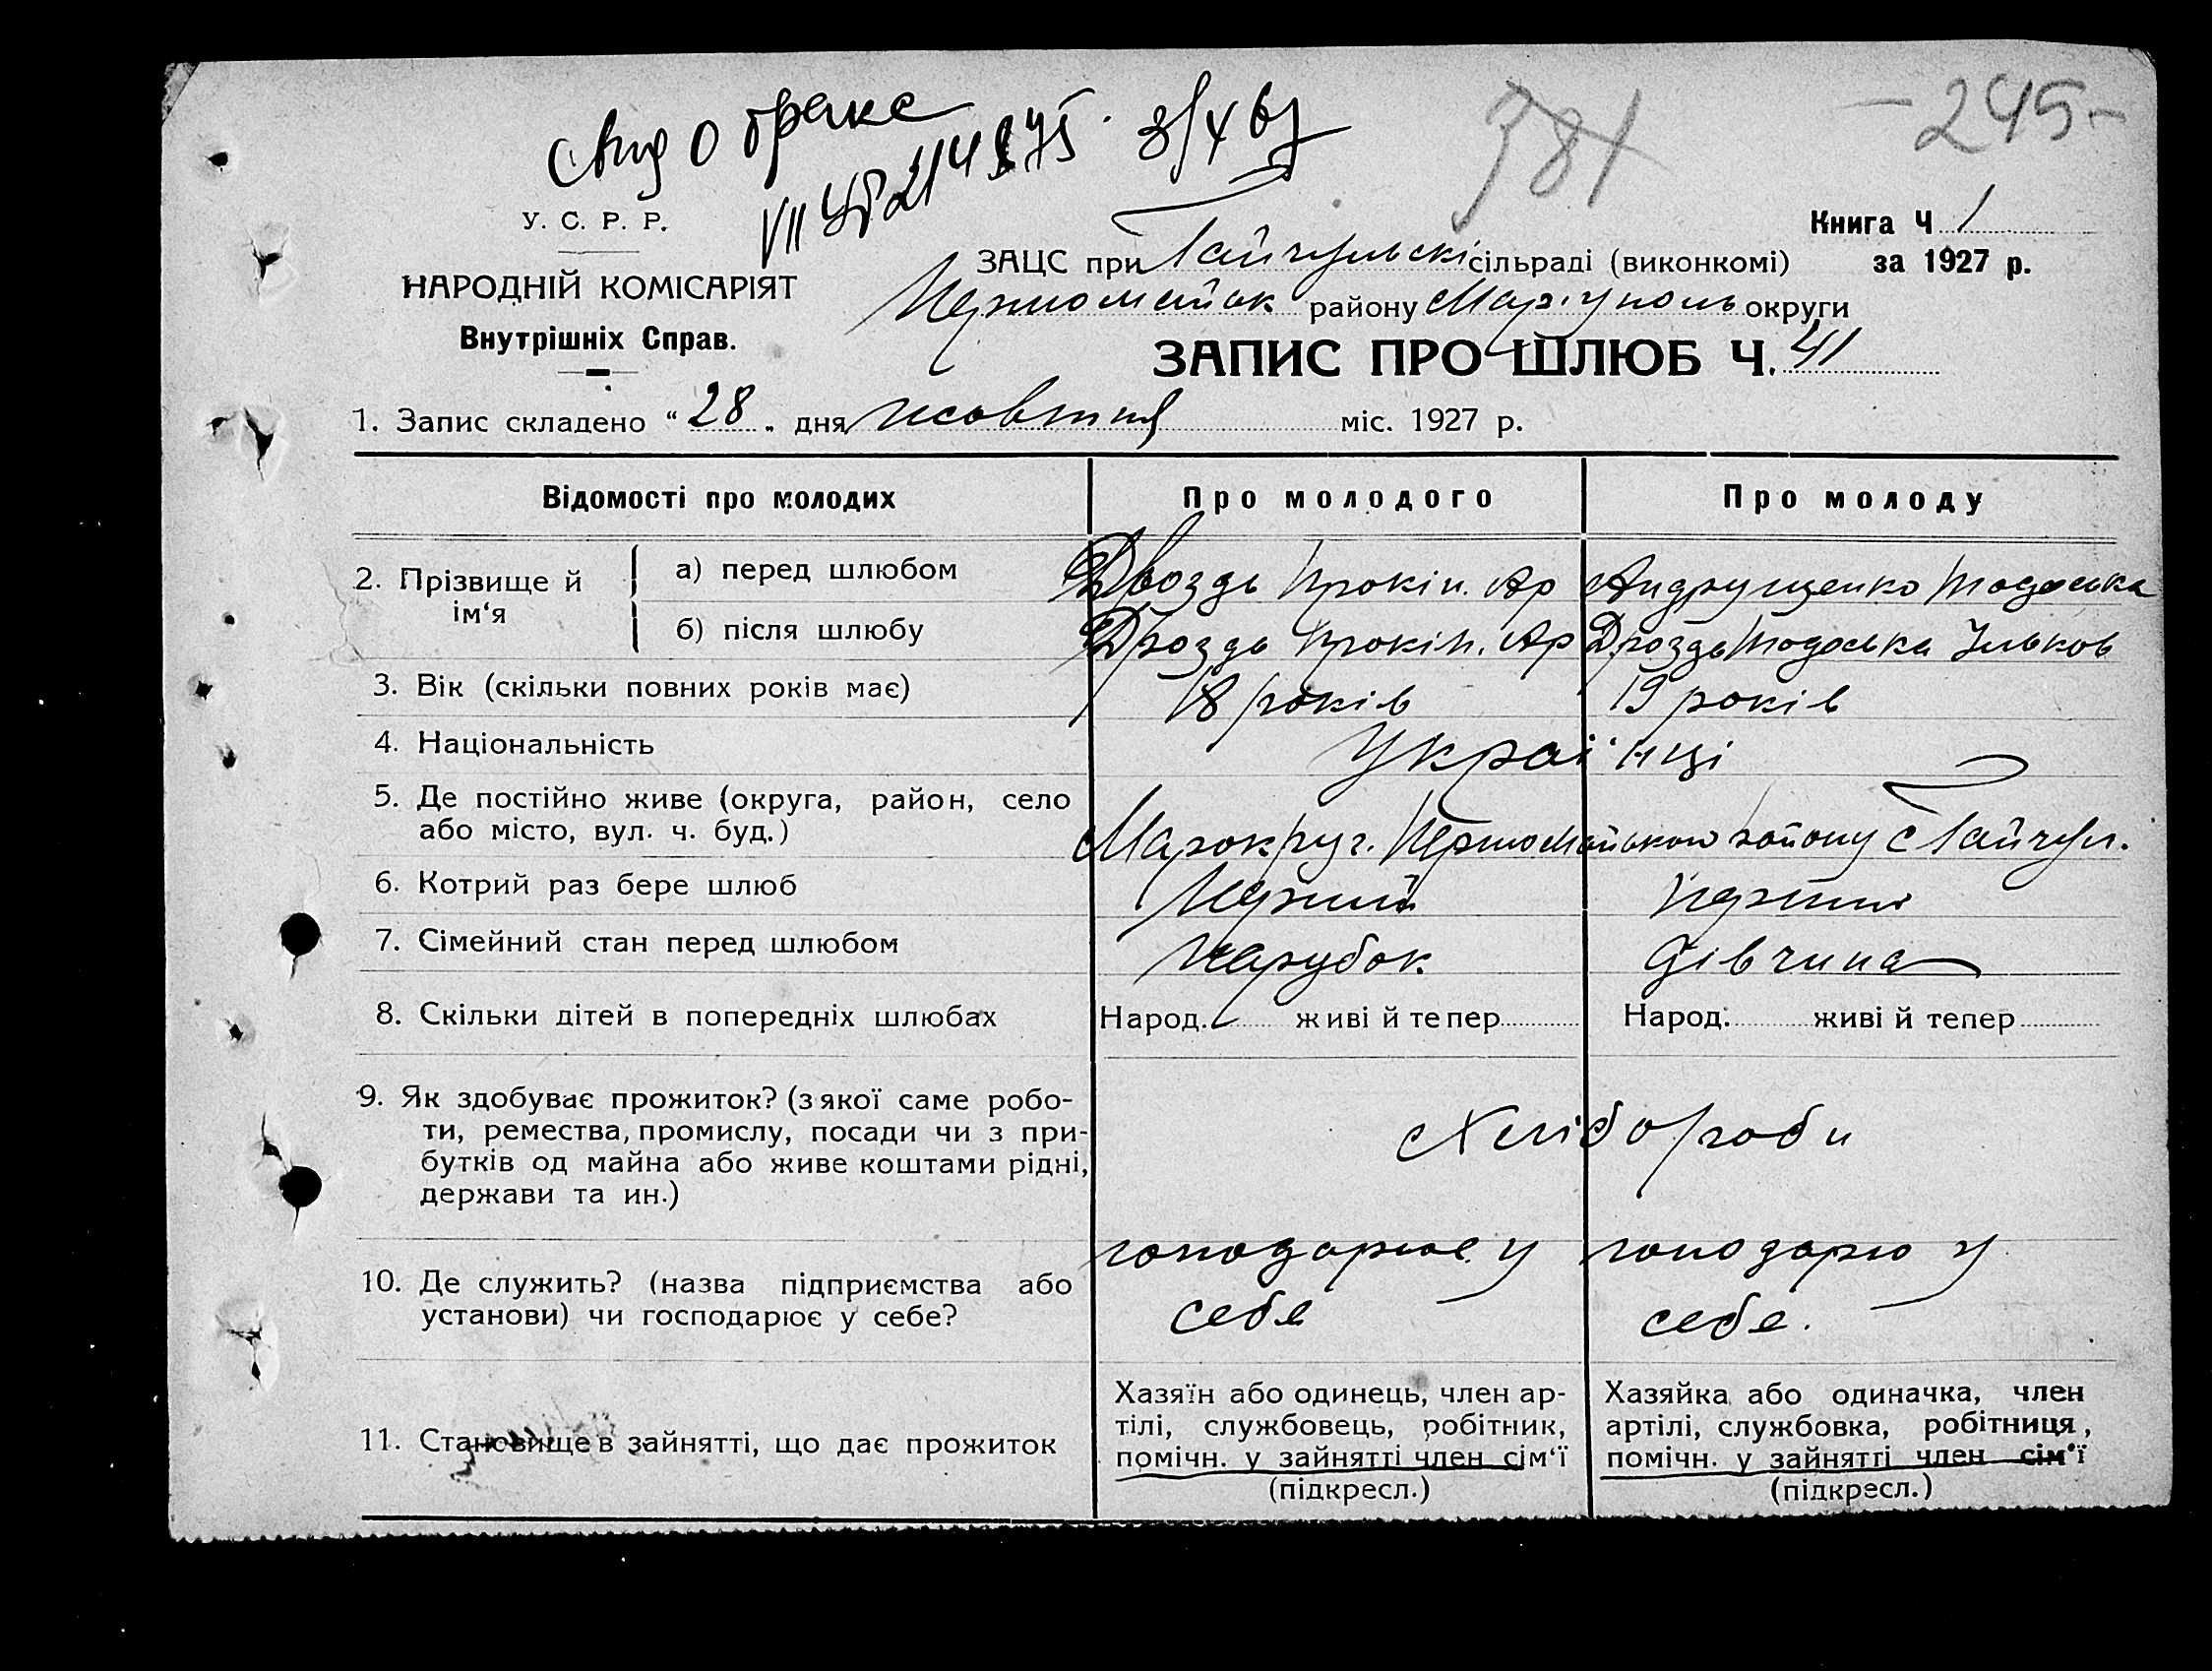 Свид о браке
VII УБ 214875. 8/4 67
381
-245-
У. С. Р. Р.
НАРОДНІЙ КОМІСАРІЯТ
Внутрішніх Справ.
Книга Ч 1
за 1927 р.
ЗАЦС при Гайчульскі сільраді (виконкомі)
Першомайск району Маріуполь округи
ЗАПИС ПРО ШЛЮБ Ч. 41
1. Запис складено "28" дня жовтня міс. 1927 р.
Відомості про молодих Про молодого Про молоду
2. Прізвище й ім'я
а) перед шлюбом Дроздь Прокіп. Ар Андрущенко Тодоська
б) після шлюбу Дроздь Прокіп. Ар Дроздь Тодоська Ільков
3. Вік (скільки повних років має) 18 років 19 років
4. Національність Украі нці
5. Де постійно живе (округа, район, село
або місто, вул. ч. буд.) Марокруг. Першомайського району с Гайчул.
6. Котрий раз бере шлюб Перший Перший
7. Сімейний стан перед шлюбом Парубок Дівчина
8. Скільки дітей в попередніх шлюбах Народ. живі й тепер Народ. живі й тепер
9. Як здобуває прожиток? (з якої саме робо-
ти, ремества, промислу, посади чи з при-
бутків од майна або живе коштами рідні,
держави та ин.)
Хлібороби
10. Де служить? (назва підприємства або
установи) чи господарює у себе?
господарює у себе
господарю у себе.
11. Становище в зайнятті, що дає прожиток
Хазяїн або одинець, член ар-
тілі, службовець, робітник,
помічн. у зайнятті член сім'ї
(підкресл.)
Хазяйка або одиначка, член
артілі, службовка, робітниця,
помічн. у зайнятті член сім'ї
(підкресл.)